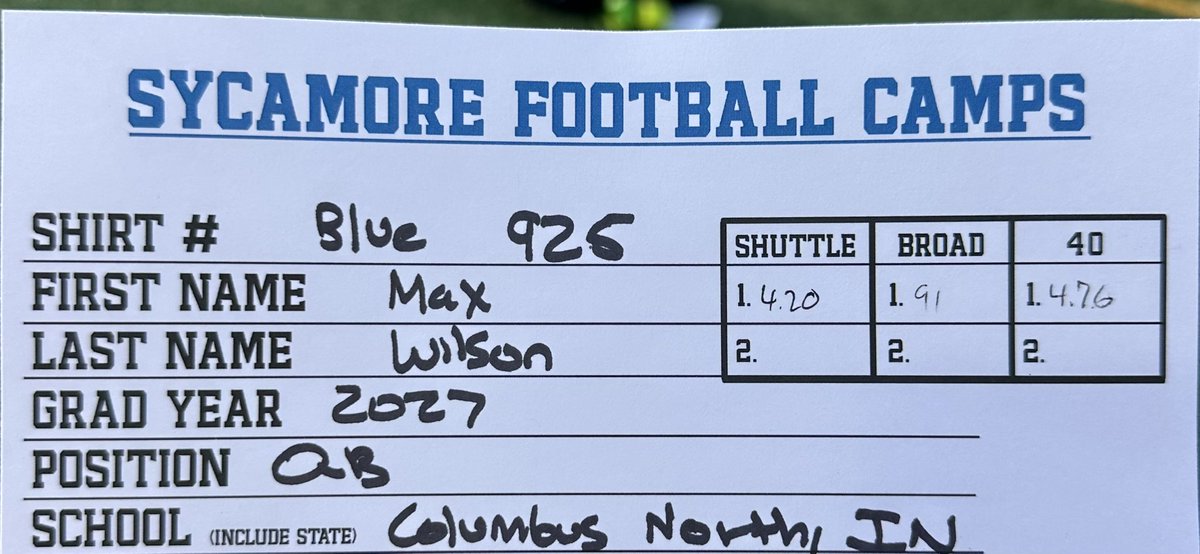 SYCAMORE FOOTBALL CAMPS
SHIRT # Blue 926
FIRST NAME Max
LAST NAME Wilson
GRAD YEAR 2027
POSITION QB
SCHOOL (INCLUDE STATE) Columbus North, IN
SHUTTLE BROAD 40
1. 4.20 1. 91 1. 4.76
2. 2. 2.